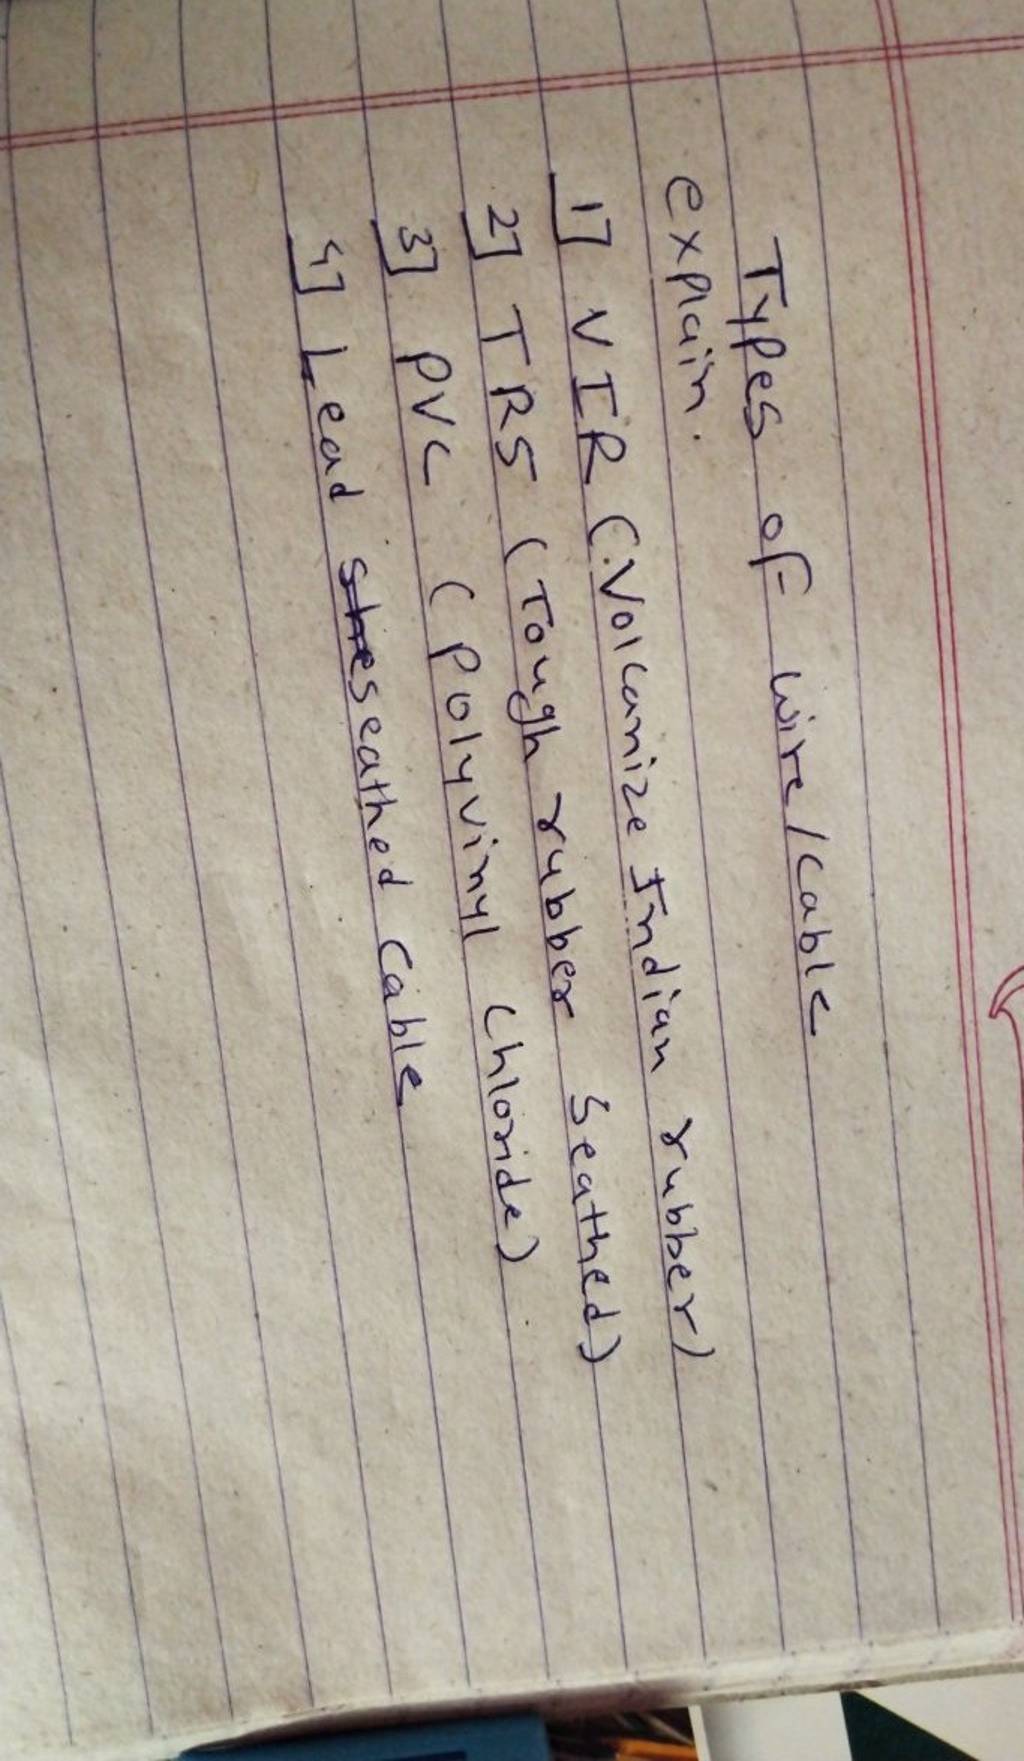 Types of wire/cable
explain.
1] VIR (Volcanize Indian rubber)
2] TRS (Tough rubber seathed)
3] PVC (polyvinyl chloride)
4] Lead seathed cable